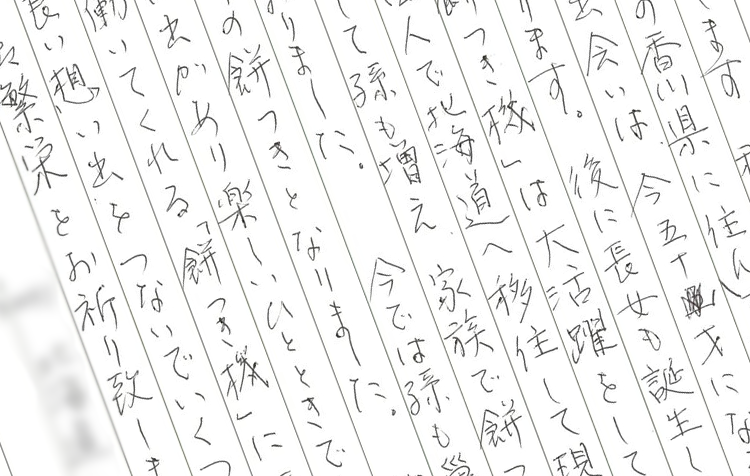 ます
の香川県に住ん
会いは 今五十才にな
ります。 後に長女も誕生し
つき機」は大活躍をして
人で北海道へ移住して現
して孫も増え 家族で餅つ
りました。 今では孫も
の餅つきとなりました。
い出があり楽しいひとときで
働いてくれる「餅つき機」に
良い想い出をつないでいくつ
繁栄をお祈り致しま